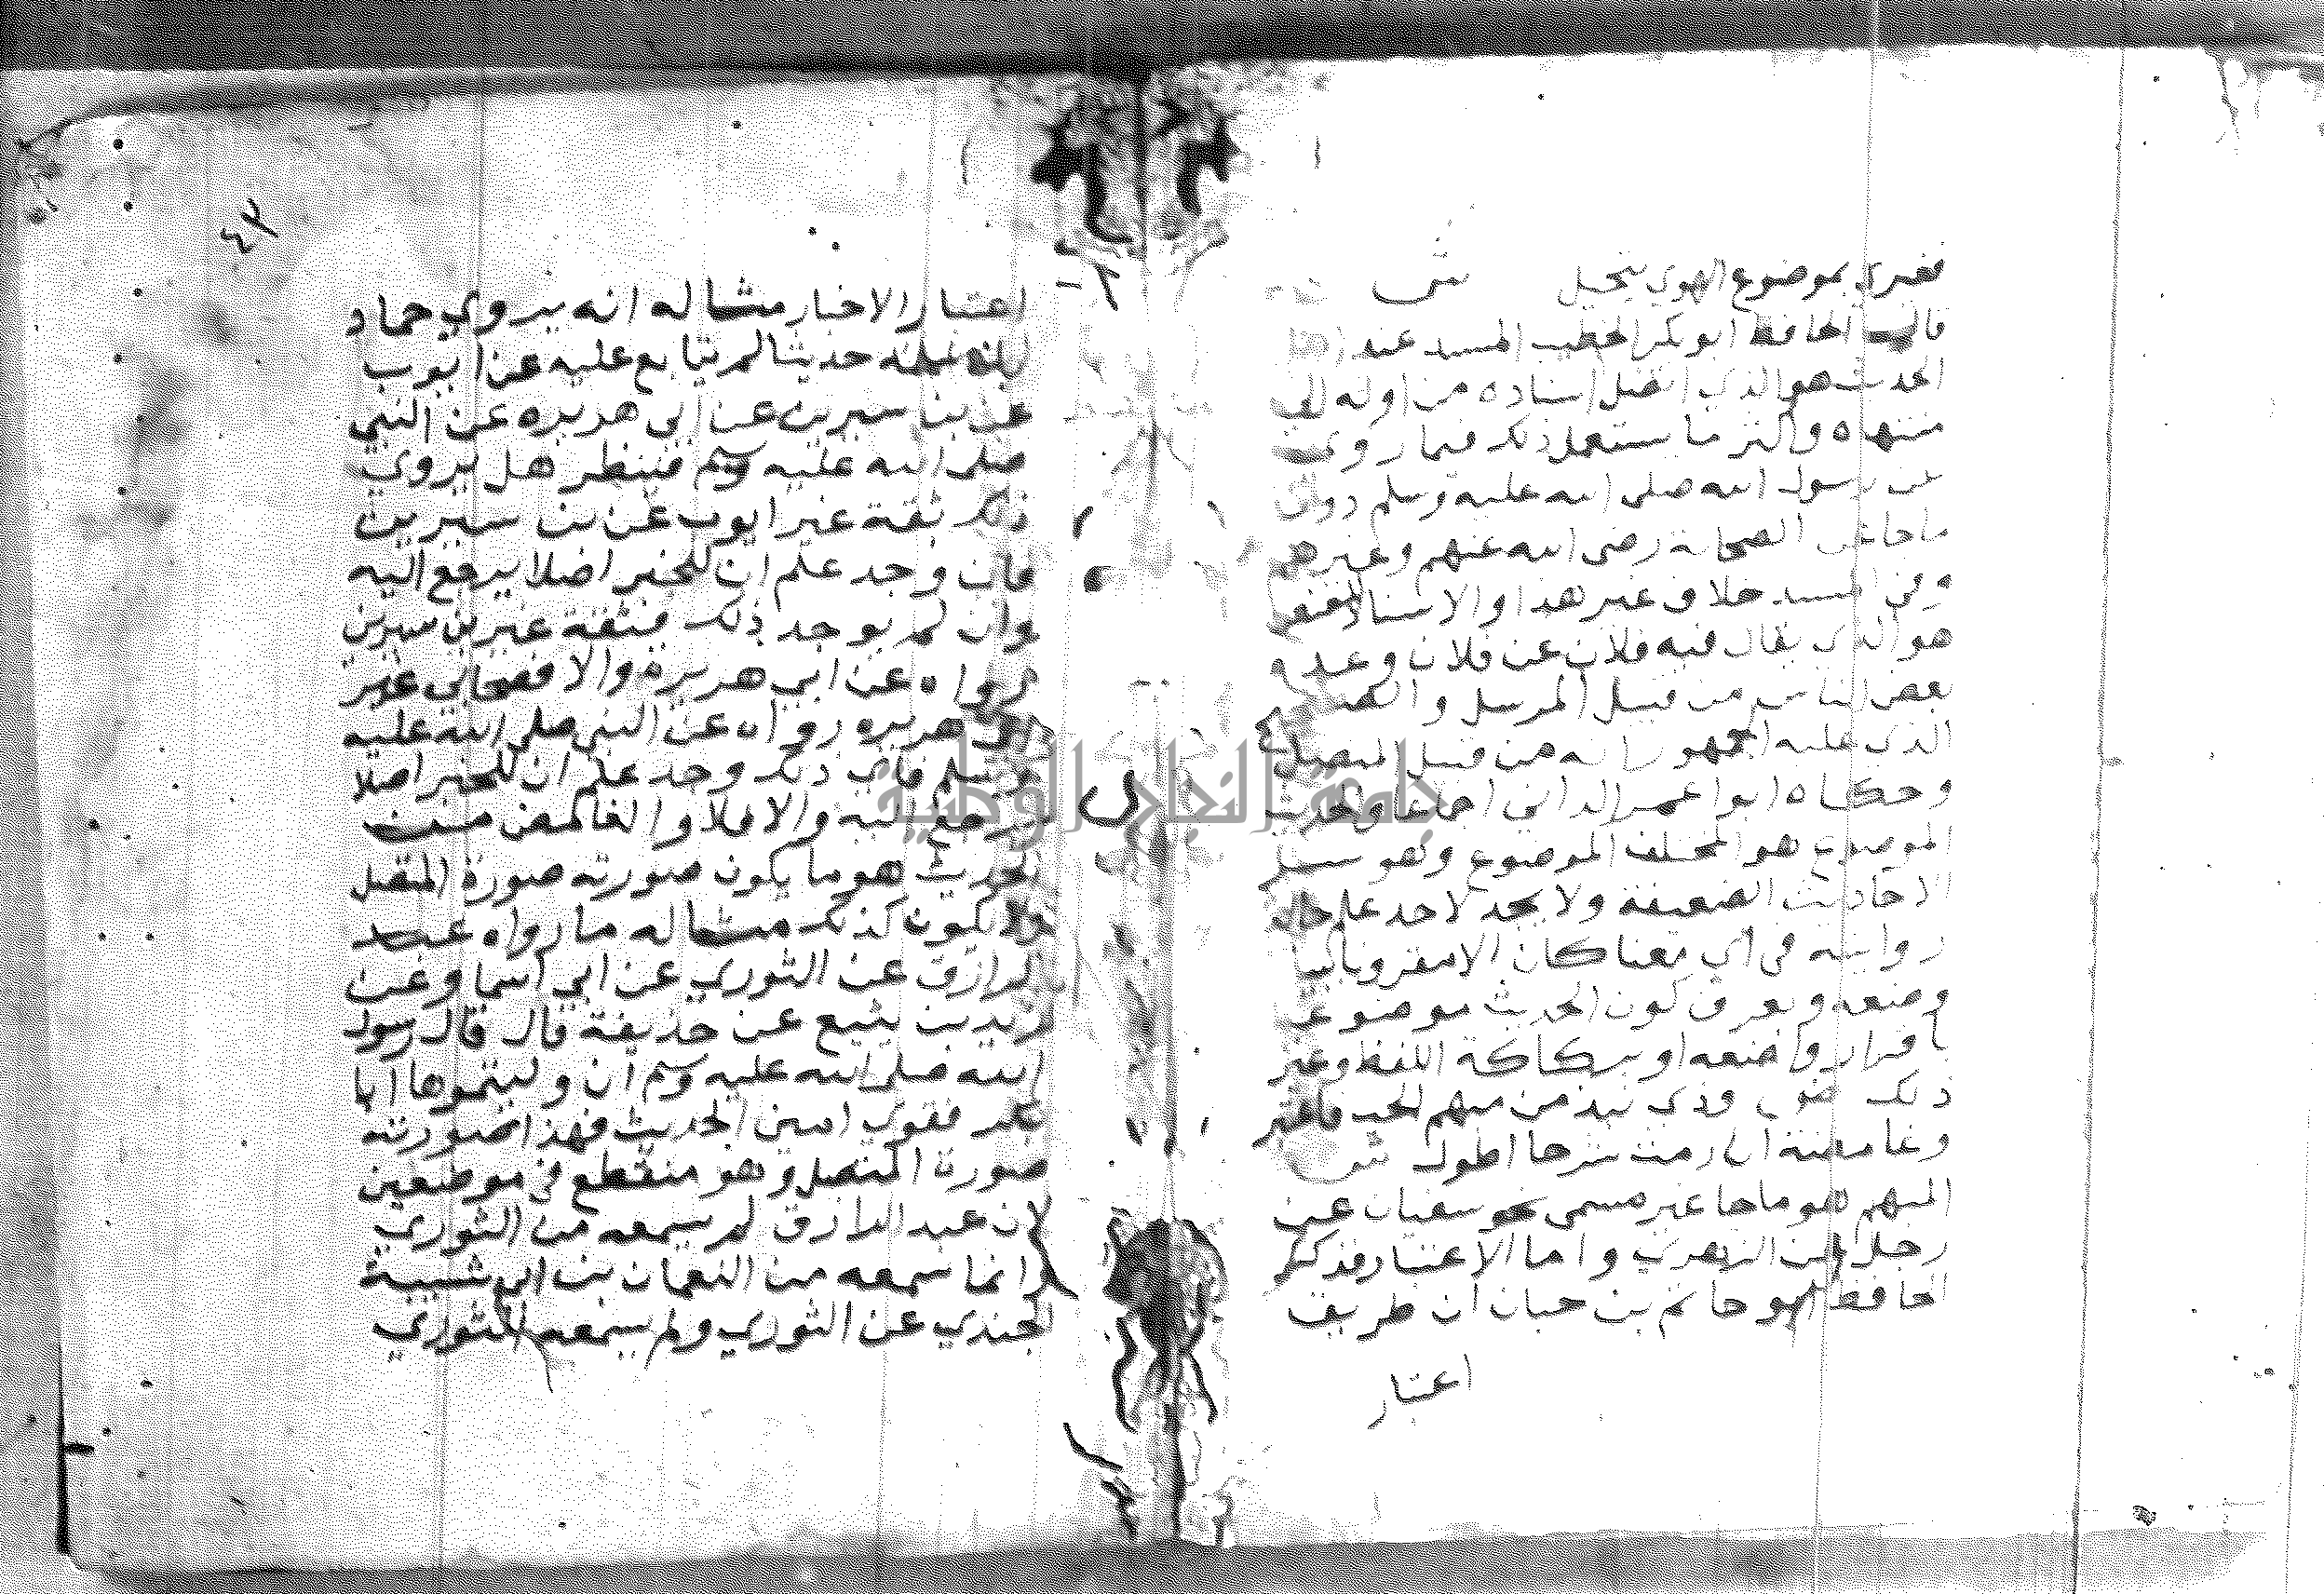 فغيري بموضوع الهوي يتحيل ش
قال الحافظ ابو بكر الخطيب المسند عند
الحديث هو الذي اتصل اسناده من اوله الي
منتهاه واكثر ما يستعمل ذلك فيما روي
عن رسول الله صلى الله عليه وسلم دون
ما جا عن الصحابة رضى الله عنهم وغيرهم
وفي المسند خلاف غير هذا والاسناد المعنعن
هو الذي يقال فيه فلان عن فلان وعده
بعض الناس من قبيل المرسل و
الذي عليه الجمهور انه من قبيل المتصل
وحكاه ابوا عمر الداني اجماعا والحديث
الموضوع هو المختلف الموضوع وهو
الاحاديث الضعيفة ولا يحد لاحد علم حاله
روايته في أي معنا كان الا مقرونا ببيان
وضعه ويعرف كون الحديث موضوعا
باقرار واضعه او بركاكة اللفظ وغير
ذلك ش وذي نبذ من مبهم الحب فاعتبر
وغامضة ان رمت شرحا اطول ش
المبهم هو ما جا غير مسمى نحو سفيان عن
رجل عن الزهري واما الاعتبار فذكر
الحافظ ابو حاتم بن حبان ان طريق
اعتبار
٤٢
اعتبار الاخبار مثاله انه يروي حماد
بن سلمه حديثا لم يتابع عليه عن ايوب
عن بن سيرين عن ابي هريره عن النبي
صلى الله عليه وسلم فينظر هل يروي
ذلك ثقة غير ايوب عن بن سيرين
فان وجد علم ان للخبر اصلا يرجع اليه
وان لم يوجد ذلك فثقة غير بن سيرين
رواه عن ابي هريره والا فصحابي غير
ابي هريره رواه عن النبي صلى الله عليه
وسلم فاي ذلك وجد علم ان للخبر اصلا
يرجع اليه والا فلا والغامض من
الحديث هو ما يكون صورته صورة المتصل
ولا يكون كذلك مثاله ما رواه عبد
الرازق عن الثوري عن ابي اسما وعن
زيد بن يثيع عن حذيفة قال قال رسول
الله صلى الله عليه وسلم ان وليتموها ابا
بكر فقوي امين الحديث فهذا صورته
صورة المتصل وهو منقطع في موضعين
لان عبد الرازق لم يسمعه من الثوري
وانما سمعه من النعمان بن ابي شيبة
الجندي عن الثوري ولم يسمعه الثوري
جامعة النجاح الوطنية